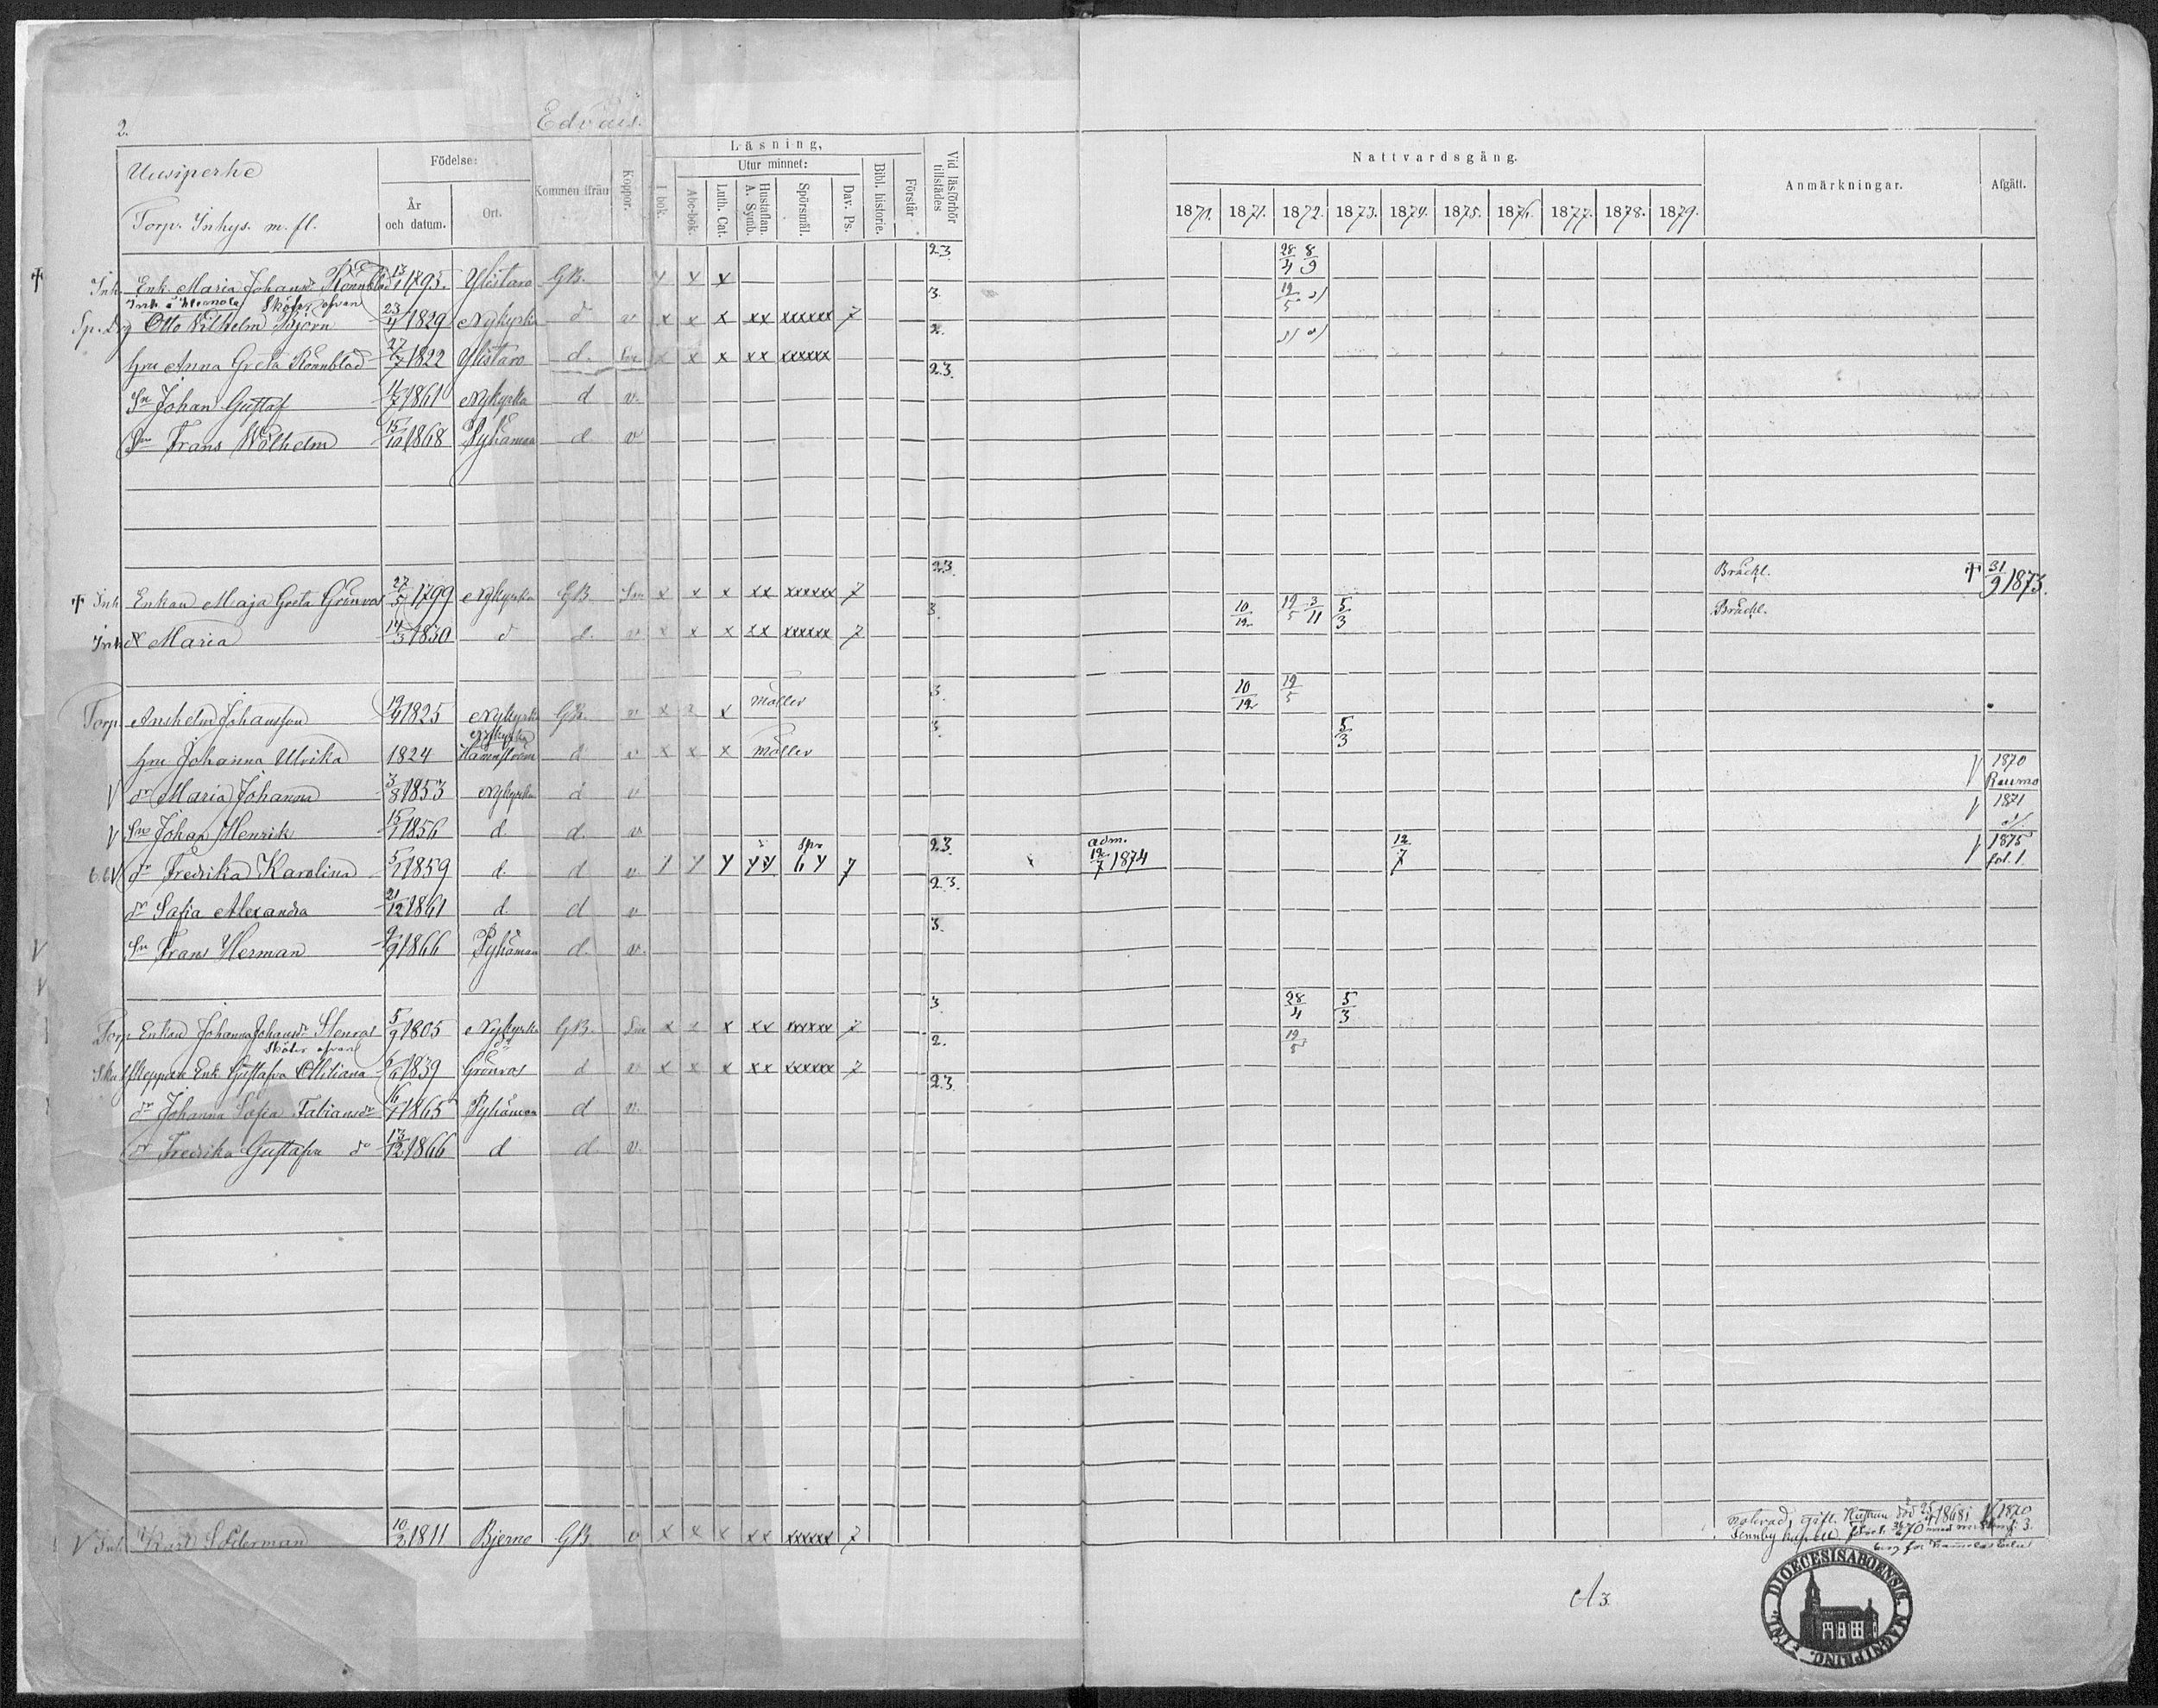 2.
Edväis.
Uusiperhe
Torp. Inhys. m. fl.
Födelse:
År och datum.
Ort.
Kommen ifrån
Koppor.
Läsning,
I bok.
Utur minnet:
Abc-bok.
Luth. Cat.
Hustaflan. A. Symb.
Spörsmål.
Dav. Ps.
Bibl. historie.
Förstår
Vid läsförhör tillstädes
Nattvardsgång.
1870. 1871. 1872. 1873. 1874. 1875. 1876. 1877. 1878. 1879.
Anmärkningar.
Afgått.
† Inh. Enk. Maria Johansdr Rönnblad 1795. Ylistaro GB. y y x 23. 28/4 8/9
Sköter ofvan
Otto Vilhelm Björn 23/4 1829 Nykyrka d v x x x xx xxxxxx 7 3. 19/5
hru Anna Greta Rönnblad 27/7 1822 Ylistaro d. x x x xx xxxxxx 2.
Sn Johan Gustaf 11/7 1861 Nykyrka d v. 23.
Sn Frans Wilhelm 15/10 1868 Pyhämaa d v
† Inh Enkan Maja Greta Grönros 27/5 1799 Nykyrka GB x x x xx xxxxxx 7 23. Bräckl. † 31/9 1873.
Inh dr Maria 14/3 1830 d d. v x x x xx xxxxxx 7 3. 10/12 19/5 3/11 5/3 Bräckl.
Torp. Anshelm Johansson 19/9 1825 Nykyrka GB. v x x x möller 3. 10/12 19/5
Nykyrka
hru Johanna Ulrika 1824 Hammström d v x x x möller 3. 5/3
V dr Maria Johanna 3/8 1853 Nykyrka d v V 1870 Raumo
V Sn Johan Henrik 15/7 1856 d. d. v V 1871
dr Fredrika Karolina 5/7 1859 d. d v. y y y yy 6 y 7 23. adm. 12/7 1874 12/7 V 1875 fol. 1
dr Safia Alexandra 21/12 1861 d. d v 23.
Sn Frans Herman 9/9 1866 Pyhämaa d. v. 3.
Torp Enkan Johanna Johansdr Stenros 5/9 1805 Nykyrka GB. x x x xx xxxxxx 7 3. 28/4 5/3
Sköter ofvan
Enk. Gustafva Ottiliana 1839 Grönros d v x x x xx xxxxxx 7 2. 19/5
dr Johanna Sofia Fabiansdr 16/7 1865 Pyhämaa d v. 23.
dr Fredrika Gustafva do 13/12 1866 d d. v.
V Inh. Karl Söderman 10/2 1811 Bjerno GB v x x x xx xxxxxx 7
V 1870
A3.
DIOECESIS ABOENSIS. MAGNI PRINC. FINL.